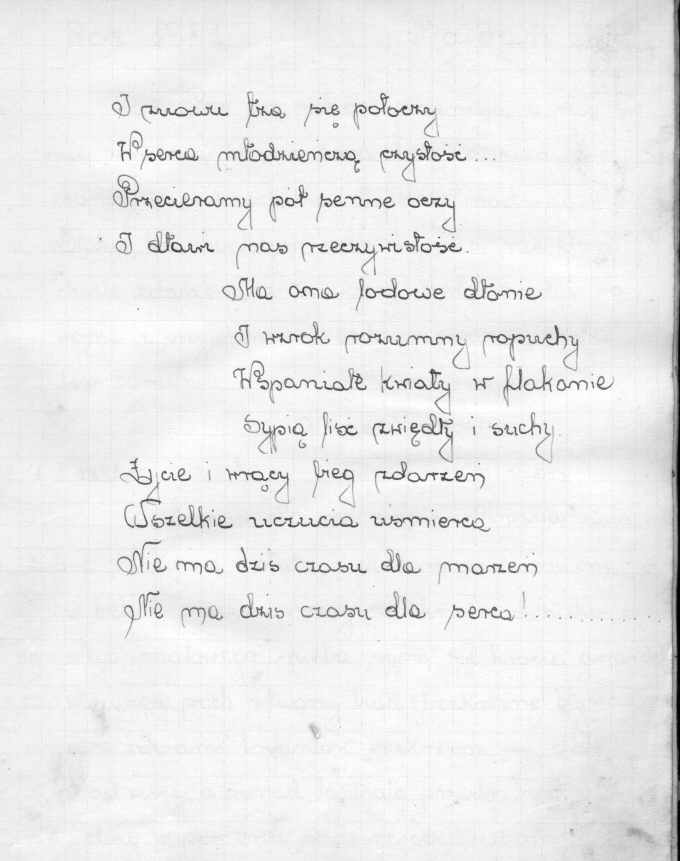 I znowu łza się potoczy
W serca młodzieńczą czystość...
Przecieramy pół senne oczy
I dławi nas rzeczywistość.
Ma ona lodowe dłonie
I wzrok rozumny ropuchy
Wspaniałe kwiaty w flakonie
Sypią liść zwiędły i suchy.
Życie i wrący bieg zdarzeń
Wszelkie uczucia uśmierca
Nie ma dziś czasu dla marzeń
Nie ma dziś czasu dla serca!............